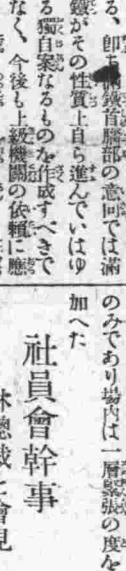 る、卽ち滿鐵首腦部の意向では滿
鐵がその性質上自ら進んでいはゆ
る獨自案なるものを作成すべきで
なく、今後も上級機關の依賴に應
のみであり場内は一層緊張の度を
加へた
社員會幹事
林總裁と會見